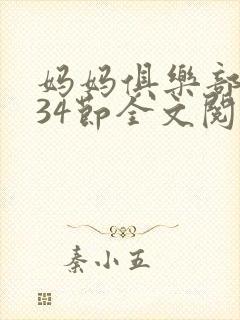 妈妈俱樂部
34節全文閱
秦小五